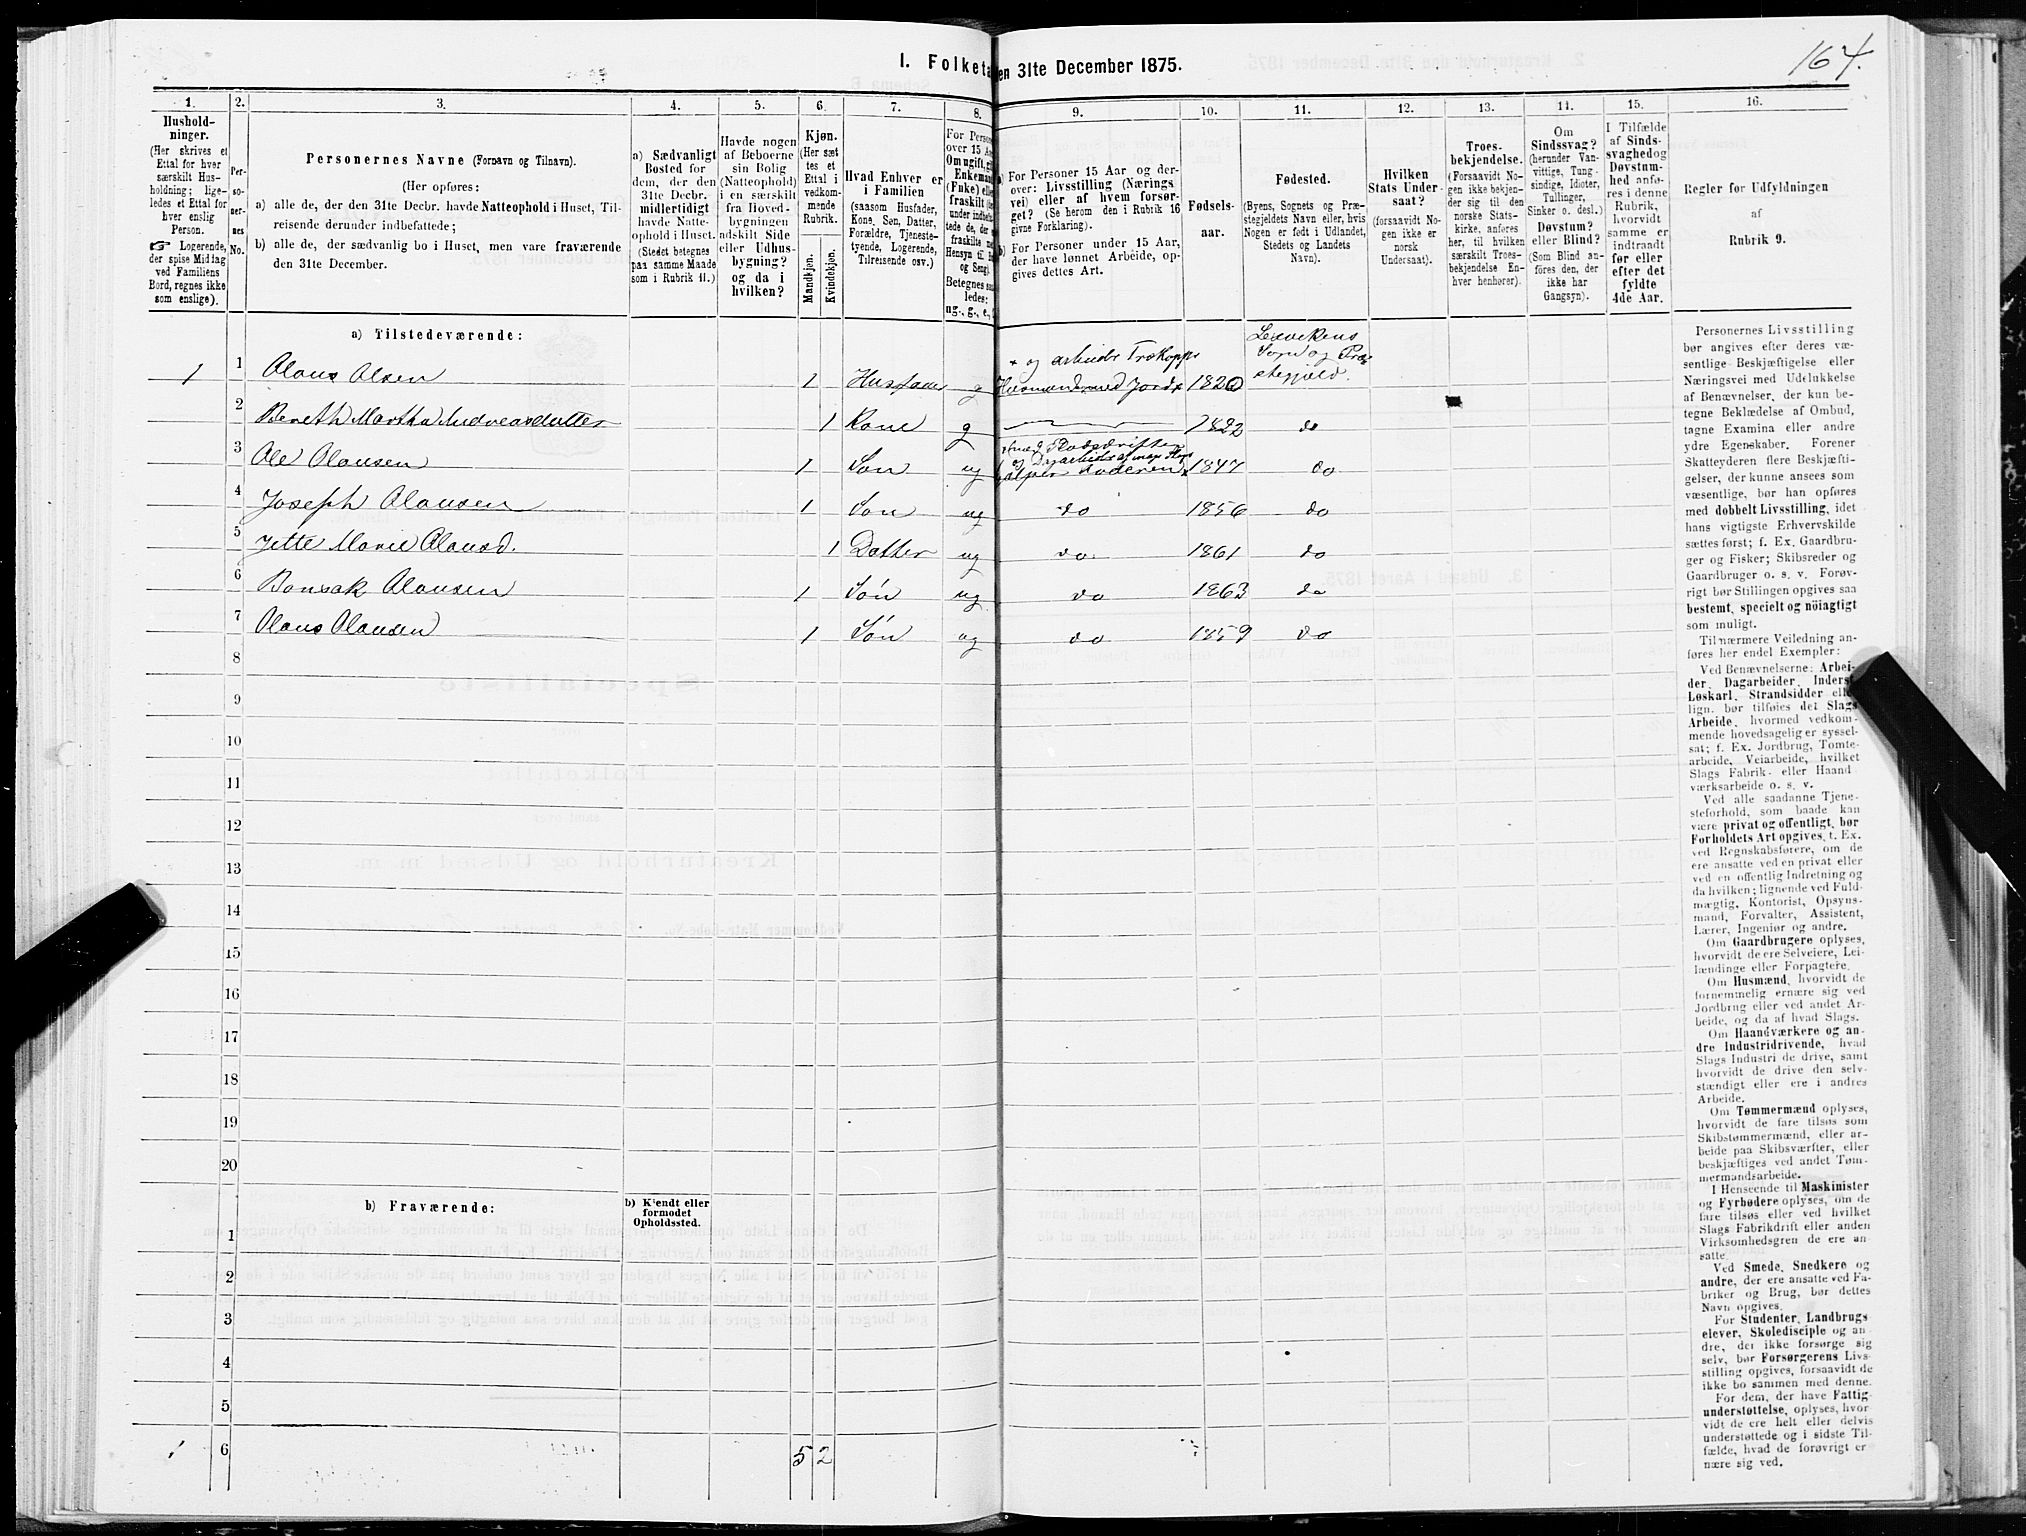 164.
I. Folketa en 31te December 1875.
1. 2. 3. 4. 5. 6. 7. 8. 9. 10. 11. 12. 13. 14. 15. 16.
Hushold-
ninger.
(Her skrives et
Ettal for hver
særskilt Hus-
holdning; lige-
ledes et Ettal for
hver enslig
Person.
☞ Logerende,
der spise Middag
ved Familiens
Bord, regnes ikke
som enslige).
Per-
so-
ner-
nes
No.
Personernes Navne (Fornavn og Tilnavn).
(Her opføres:
a) alle de, der den 31te Decbr. havde Natteophold i Huset, Til-
reisende derunder indbefattede;
b) alle de, der sædvanlig bo i Huset, men vare fraværende
den 31te December.
a) Sædvanligt
Bosted for
dem, der den
31te Decbr.
midlertidigt
havde Natte-
ophold i Huset.
(Stedet betegnes
paa samme Maade
som i Rubrik 11.)
Havde nogen
af Beboerne
sin Bolig
(Natteophold)
i en særskilt
fra Hoved-
bygningen
adskilt Side
eller Udhus-
bygning?
og da i
hvilken?
Kjøn.
(Her sæt
tes et
Ettal i
vedkom-
mende
Rubrik.
Mandkjøn.
Kvindekjøn.
Hvad Enhver er
i Familien
(saasom Husfader,
Kone, Søn, Datter,
Forældre, Tjeneste-
tyende, Logerende,
Tilreisende osv.)
For Person
over 15 Aa
Om ugift, gi
Enkemand
(Enke) elle
fraskilt
under indbefat-
tede de, der
fraskilte
Hensyn til
og Seng).
Betegnes saa
ledes:
ug-, g-, e-,
a) For Personer 15 Aar og der-
over: Livsstilling (Nærings
vei) eller af hvem forsør-
get? (Se herom den i Rubrik 16
givne Forklaring).
b) For Personer under 15 Aar,
der have lønnet Arbeide, op-
gives dettes Art.
Fødsels-
aar.
Fødested.
(Byens, Sognets og Præ-
stegjeldets Navn eller, hvis
Nogen er født i Udlandet,
Stedets og Landets
Navn).
Hvilken
Stats Under-
saat?
(forsaavidt No-
gen ikke er
norsk
Undersaat).
Troes-
bekjendelse.
(Forsaavidt No-
gen ikke bekjen-
der sig til den
norske Stats-
kirke, anføres
her, til hvilken
særskilt Troes-
bekjendelse En-
hver henhører).
Om
Sindssvag?
(herunder Van-
vittige, Tung-
sindige, Idioter,
Tullinger,
Sinker o. desl.)
Døvstum?
eller Blind?
(Som Blind an-
føres den, der
ikke har
Gangsyn).
I Tilfælde
af Sinds-
svaghed og
Døvstum-
hed anfø-
res i denne
Rubrik,
hvorvidt
samme er
indtraadt
før eller
efter det
fyldte
4de Aar.
Regler før Udfyldningen
af
Rubrik 9.
a) Tilstedeværende:
1 1 Olaus Olsen 1 Husfader g + og arbeider Trækopper Husmand med Jord × 1820 Leexvikens Sogn og Præstegjeld.
2 Bereth Martha Andreasdatter 1 Kone g 1822 do
3 Ole Olausen 1 Søn ug hjelper Faderen × 1847 do
4 Joseph Olausen 1 Søn ug do 1856 do
5 Jette Marie Olausd. 1 Datter ug do 1861 do
6 Bonsak Olausen 1 Søn ug do 1863 do
7 Olaus Olausen 1 Søn ug do 1859 do
8
9
10
11
12
13
14
15
16
17
18
19
20
b) Fraværende:
b) Kjendt eller
formodet
Opholdssted.
1
2
3
4
5
1 6 5 2
Personernes Livsstilling
bør angives efter deres væ-
sentlige Beskjæftigelse eller
Næringsvei med Udelukkelse
af Benævnelser, der kun be-
tegne Beklædelse af Ombud,
tagne Examina eller andre
ydre Egenskaber. Forener
Skatteyderen flere Beskjæfti-
gelser, der kunne ansees som
væsentlige, bør han opføres
med dobbelt Livsstilling, idet
hans vigtigste Erhvervskilde
sættes først; f. Ex. Gaardbru-
ger og Fisker; Skibsreder og
Gaardbruger o. s. v. Forøv-
rigt bør Stillingen opgives saa
bestemt, specielt og nöiagtigt
som muligt.
Til nærmere Veiledning an-
føres her endel Exempler:
Ved Benævnelserne: Arbei-
der, Dagarbeider, Inderst,
Løskarl, Strandsidder eller
lign. bør tilføies det Slags
Arbeide, hvormed vedkom-
mende hovedsagelig er syssel-
sat; f. Ex. Jordbrug, Tomte-
arbeide, Veiarbeide, hvilket
Slags Fabrik- eller Haand
værksarbeide o. s. v.
Ved alle saadanne Tjene-
steforhold, som baade kan
være privat og offentligt, bør
Forholdets Art opgives, t. Ex.
ved Regnskabsførere, om de
ere ansatte ved en privat eller
ved en offentlig Indretning og
da hvilken; lignende ved Fuld-
mægtig, Kontorist, Opsyns-
mand, Forvalter, Assistent,
Lærer, Ingeniør og andre.
Om Gaardbrugere oplyses,
hvorvidt de ere Selveiere, Lei-
lændinge eller Forpagtere.
Om Husmænd, hvorvidt de
fornemmelig ernære sig ved
Jordbrug eller ved andet Ar-
beide, og da af hvad Slags.
Om Haandværkere og an-
dre Industridrivende, hvad
Slags Industri de drive, samt
hvorvidt de drive den selv-
stændigt eller ere i andres
Arbeide.
Om Tømmermænd oplyses,
hvorvidt de fare tilsøs som
Skibstømmermænd, eller ar-
beide paa Skibsværfter, eller
beskjæftiges ved andet Tøm-
mermandsarbeide.
I Henseende til Maskinister
og Fyrbødere oplyses, om de
fare tilsøs eller ved hvilket
Slags Fabrikdrift eller anden
Virksomhedsgren de ere an-
satte.
Ved Smede, Snedkere og
andre, der ere ansatte ved Fa-
briker og Brug, bør dettes
Navn opgives.
For Studenter, Landbrugs
elever, Skoledisciple og an-
dre, der ikke forsørge sig
selv, bør Forsørgerens Livs-
stilling opgives, forsaavidt de
ikke bo sammen med denne.
For dem, der have Fattig-
understøttelse, oplyses, hvor-
vidt de ere helt eller delvis
understøttede og i sidste Til-
fælde, hvad de forøvrigt er
nære sig ved.